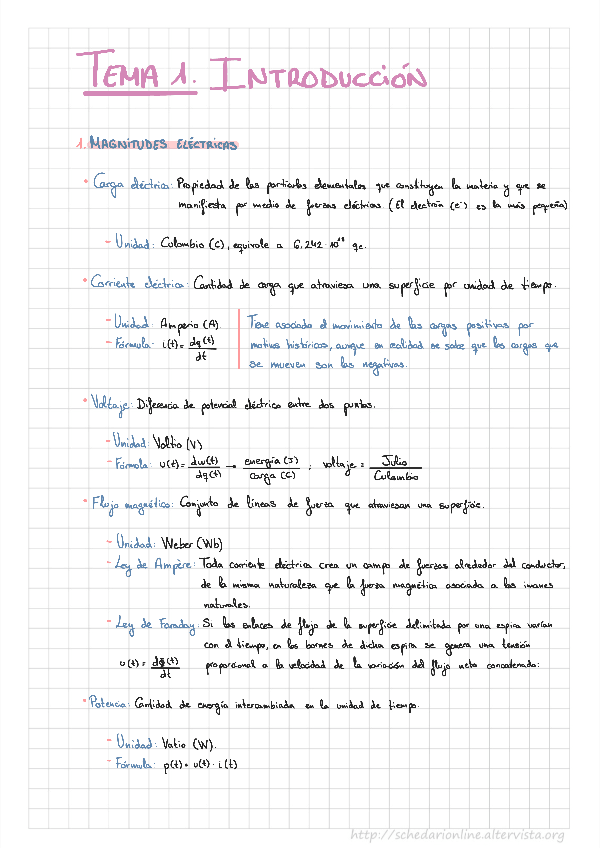 TEMA 1. INTRODUCCIÓN
1. MAGNITUDES ELÉCTRICAS
• Carga eléctrica: Propiedad de las partículas elementales que constituyen la materia y que se
manifiesta por medio de fuerzas eléctricas (El electrón (e⁻) es la más pequeña)
- Unidad: Colombio (C), equivale a 6,242·10¹⁸ qe.
• Corriente eléctrica: Cantidad de carga que atraviesa una superficie por unidad de tiempo.
- Unidad: Amperio (A).
- Fórmula: i(t) = dq(t)/dt
Tiene asociado el movimiento de las cargas positivas por
motivos históricos, aunque en realidad se sabe que las cargas que
se mueven son las negativas.
• Voltaje: Diferencia de potencial eléctrico entre dos puntos.
- Unidad: Voltio (V)
- Fórmula: u(t) = dw(t)/dq(t) → energía (J)/carga (C) ; voltaje = Julio/Culombio
• Flujo magnético: Conjunto de líneas de fuerza que atraviesan una superficie.
- Unidad: Weber (Wb)
- Ley de Ampère: Toda corriente eléctrica crea un campo de fuerzas alrededor del conductor,
de la misma naturaleza que la fuerza magnética asociada a los imanes
naturales.
- Ley de Faraday: Si los enlaces de flujo de la superficie delimitada por una espira varían
con el tiempo, en los bornes de dicha espira se genera una tensión
proporcional a la velocidad de la variación del flujo neto concatenado:
u(t) = dϕ(t)/dt
• Potencia: Cantidad de energía intercambiada en la unidad de tiempo.
- Unidad: Vatio (W).
- Fórmula: p(t) = u(t) · i(t)
http://schedarionline.altervista.org